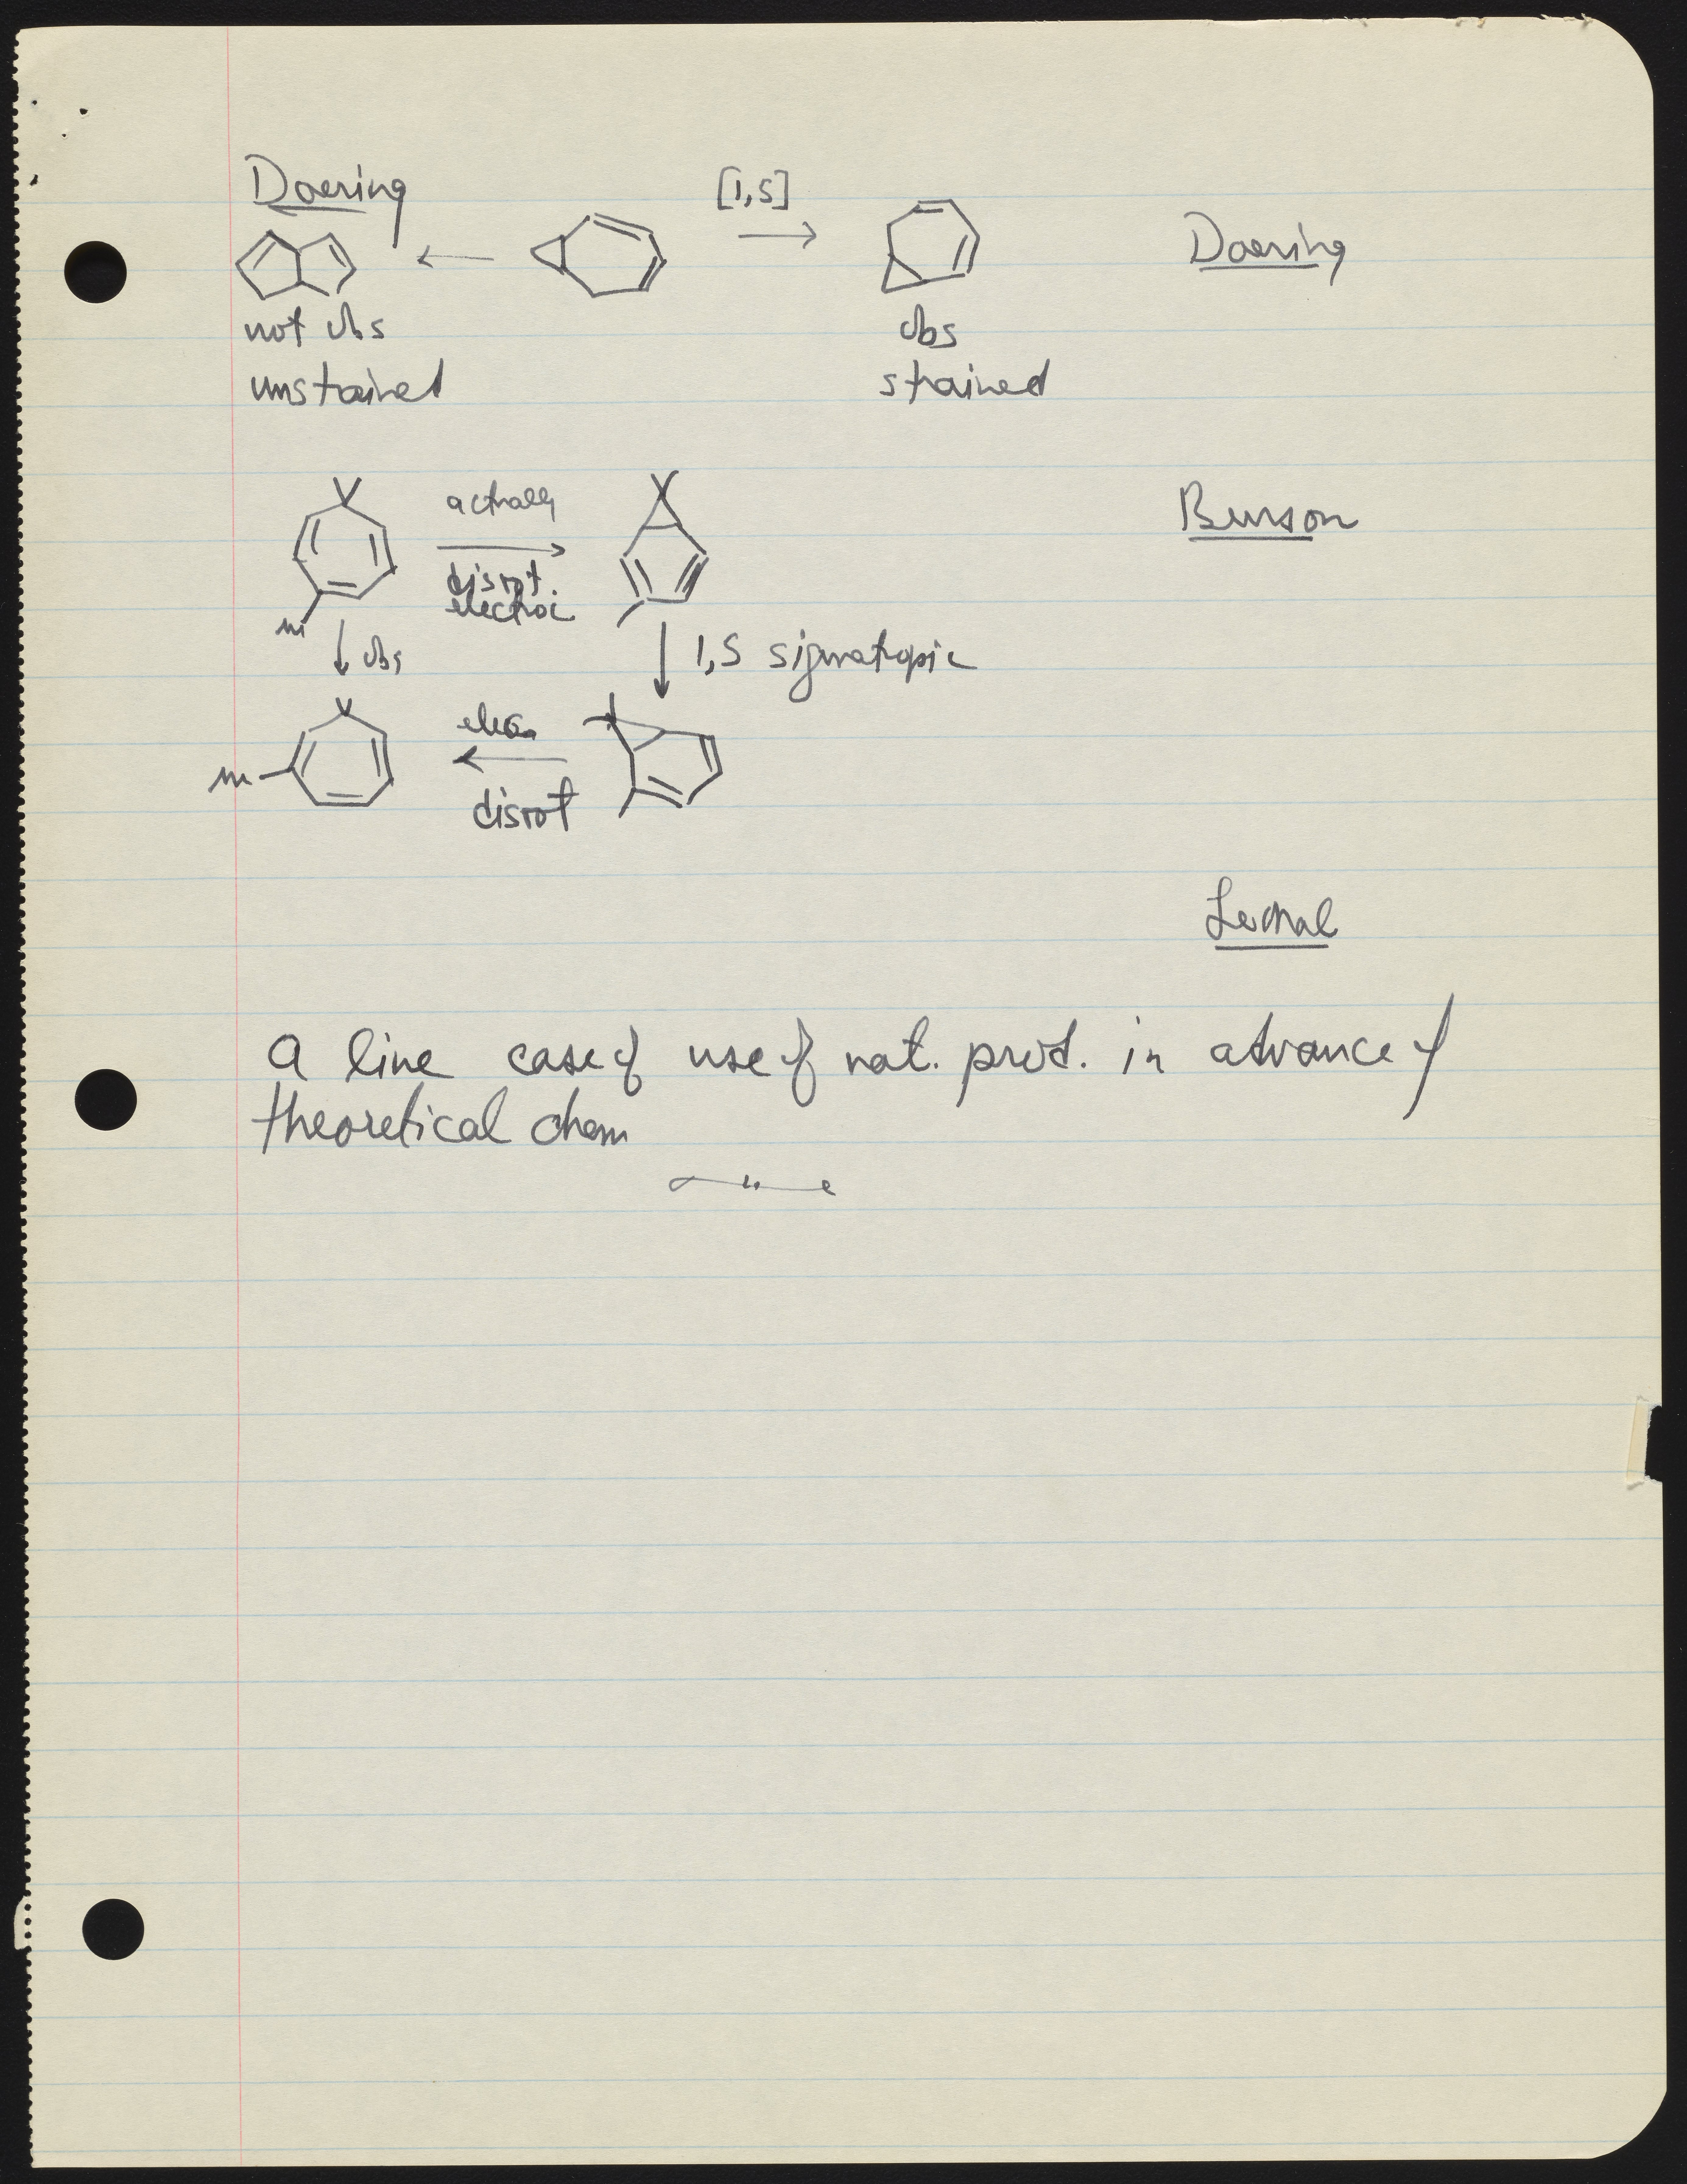 Doering
[1,5]
Doering
not obs
obs
unstrained
strained
actually
Berson
disrot.
electroc
m
obs
1,5 sigmatropic
elec.
m
disrot
Lemal
A fine case of use of nat. prod. in advance of
theoretical chem